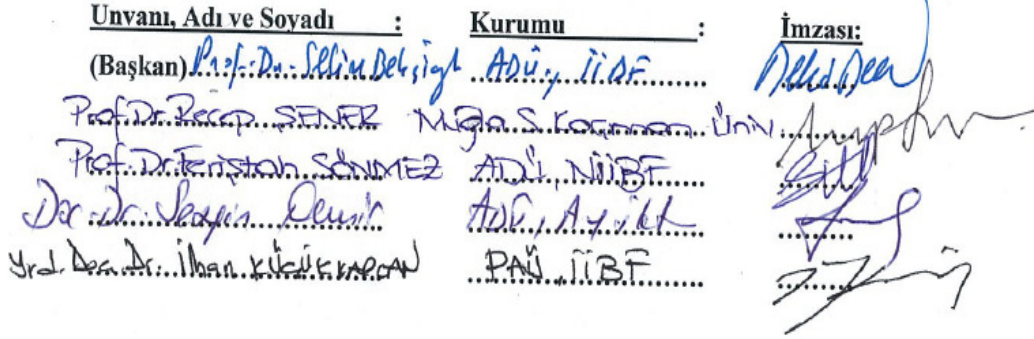 Unvanı, Adı ve Soyadı : Kurumu : İmzası:
(Başkan) Prof. Dr. Selim ADÜ, İİBF
Prof. Dr. Recep ŞENER Muğla S. Koçman Üniv.
Prof. Dr. Feriştah SÖNMEZ ADÜ, NİİBF
Doç. Dr. Sezgin Demir ADÜ,
Yrd. Doç. Dr. İlhan KÜÇÜKKAPLAN PAÜ İİBF